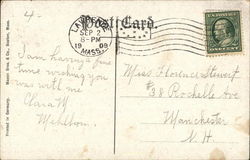 4.
Post Card.
LAWRENCE
SEP 2
8-PM
1909
MASS.
I am having a fine
time wishing you
was with me
Clara M
Miss Florence
#38 Rochelle Ave
Manchester
N.H.
Printed in Germany.